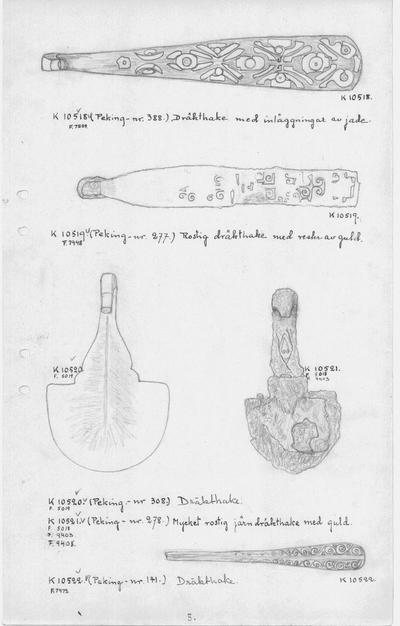 K 10518.
K 10518 (Peking-nr. 388.) Dräkthake med inläggningar av jade.
K 10519.
K 10519 (Peking-nr. 277.) Rostig dräkthake med rester av guld.
F. 7948
K 10520
F. 5019
K 10521.
F. 5018
9403
K 10520. (Peking-nr 308) Dräkthake.
F. 5019
K 10521. (Peking-nr. 278.) Mycket rostig järndräkthake med guld.
F. 5018
F. 9403
F. 9408.
K 10522. (Peking-nr. 141.) Dräkthake.
K 10522.
5.